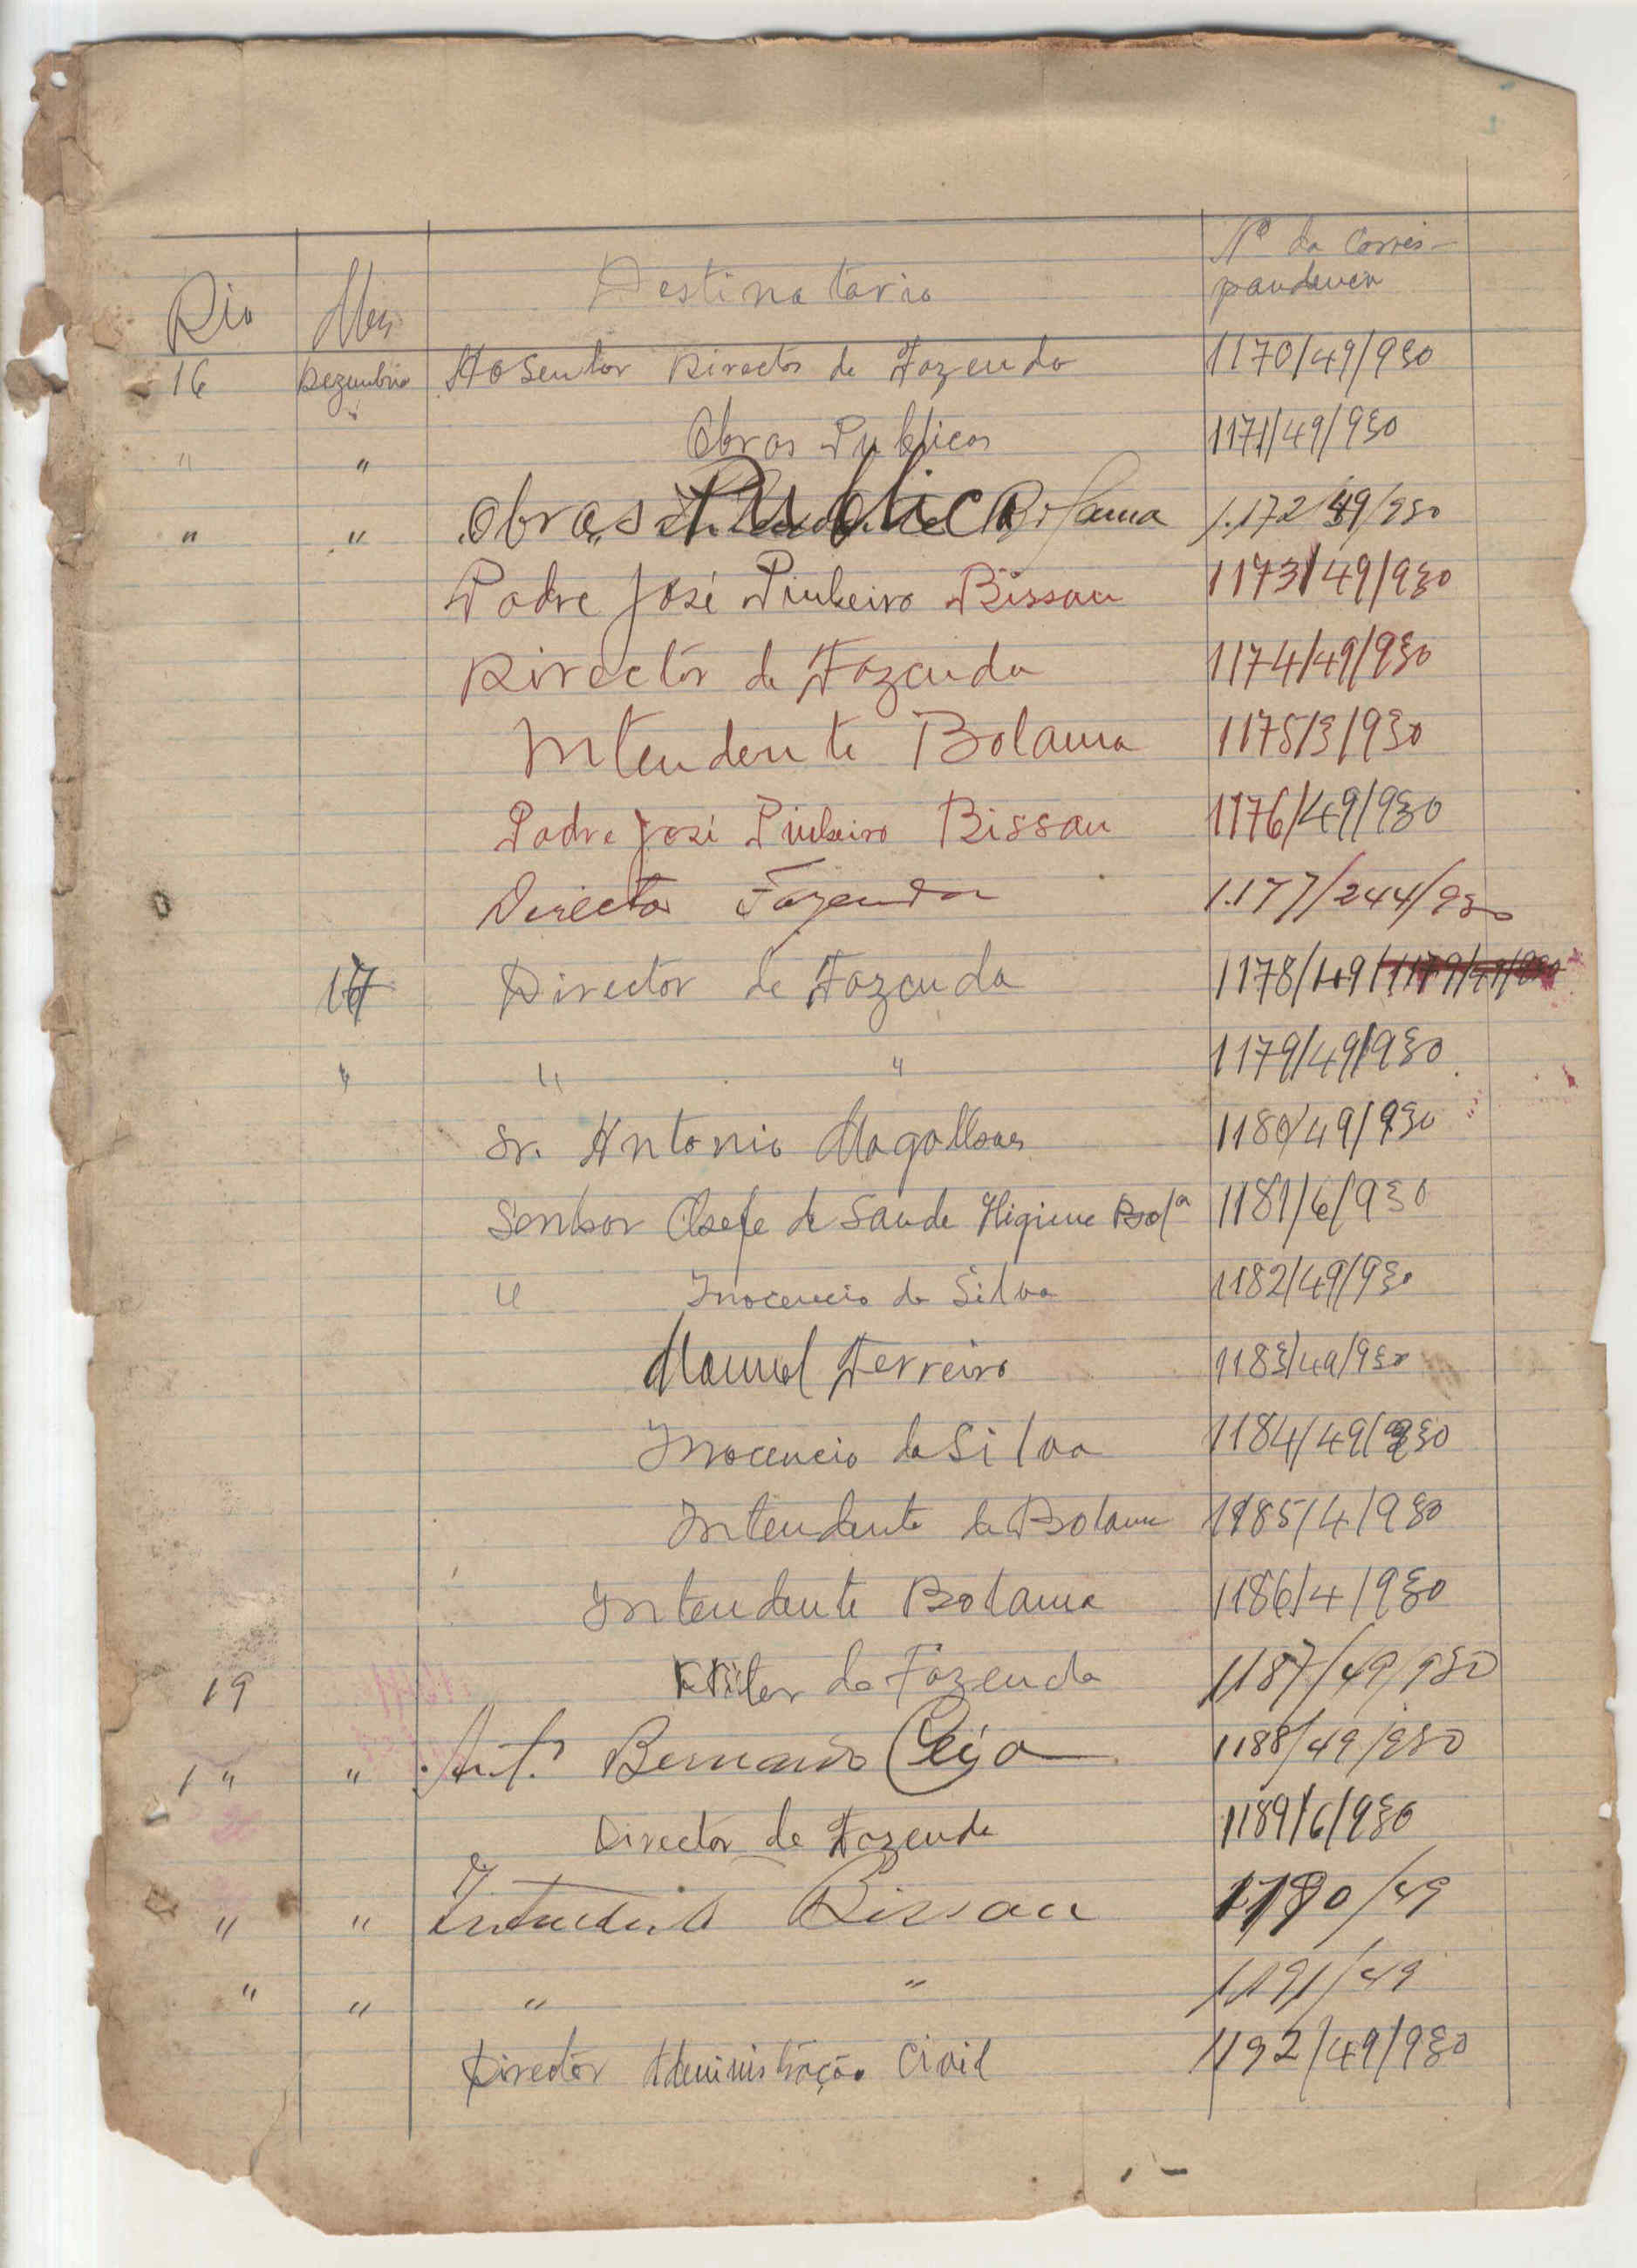 Nº da Corres-
Dia Mez Destinatario pondencia
16 Dezembro Ao Senhor Director de Fazenda 1170/49/930
" " Obras Publicas 1171/49/930
" " Obras Publica Bolama 1.172/49/930
Padre José Pinheiro Bissau 1173/49/930
Director de Fazenda 1174/49/930
Intendente Bolama 1175/3/930
Padre José Pinheiro Bissau 1176/49/930
Director Fazenda 1.177/244/930
17 Director de Fazenda 1178/49/1179/49/930
" " " 1179/49/930
Sr. Antonio Magalhaes 1180/49/930
Senhor Chefe de Saude Higiene Bolª 1181/6/930
" Inocencio da Silva 1182/49/930
Manuel Ferreiro 1183/49/930
Inocencio da Silva 1184/49/930
Intendente de Bolama 1185/4/930
Intendente Bolama 1186/4/930
19 da Fazenda 1187/49/930
1 " " Antº Bernardo 1188/49/930
Director de Fazenda 1189/6/930
" " Intendente Bissau 1190/49
" " " " 1191/49
Director Administração Civil 1192/49/930